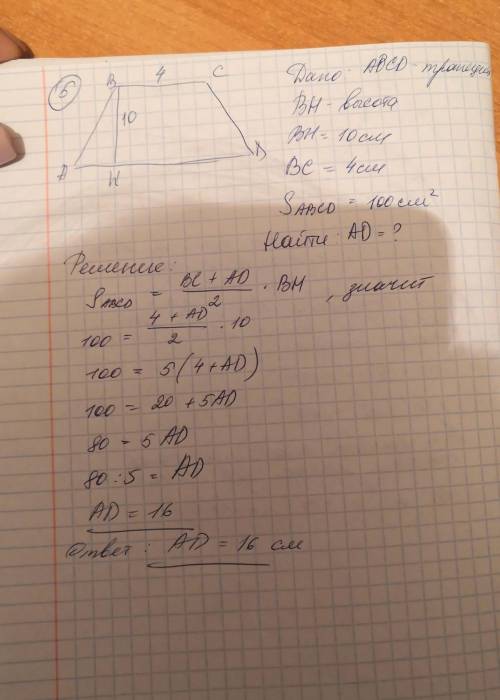 5
B 4 C
10
A H D
Дано: ABCD - трапеция
BH - высота
BH = 10 см
BC = 4 см
S ABCD = 100 см²
Найти: AD = ?
Решение:
S ABCD = (BC + AD)/2 · BH, значит
100 = (4 + AD)/2 · 10
100 = 5(4 + AD)
100 = 20 + 5AD
80 = 5AD
80 : 5 = AD
AD = 16
Ответ: AD = 16 см